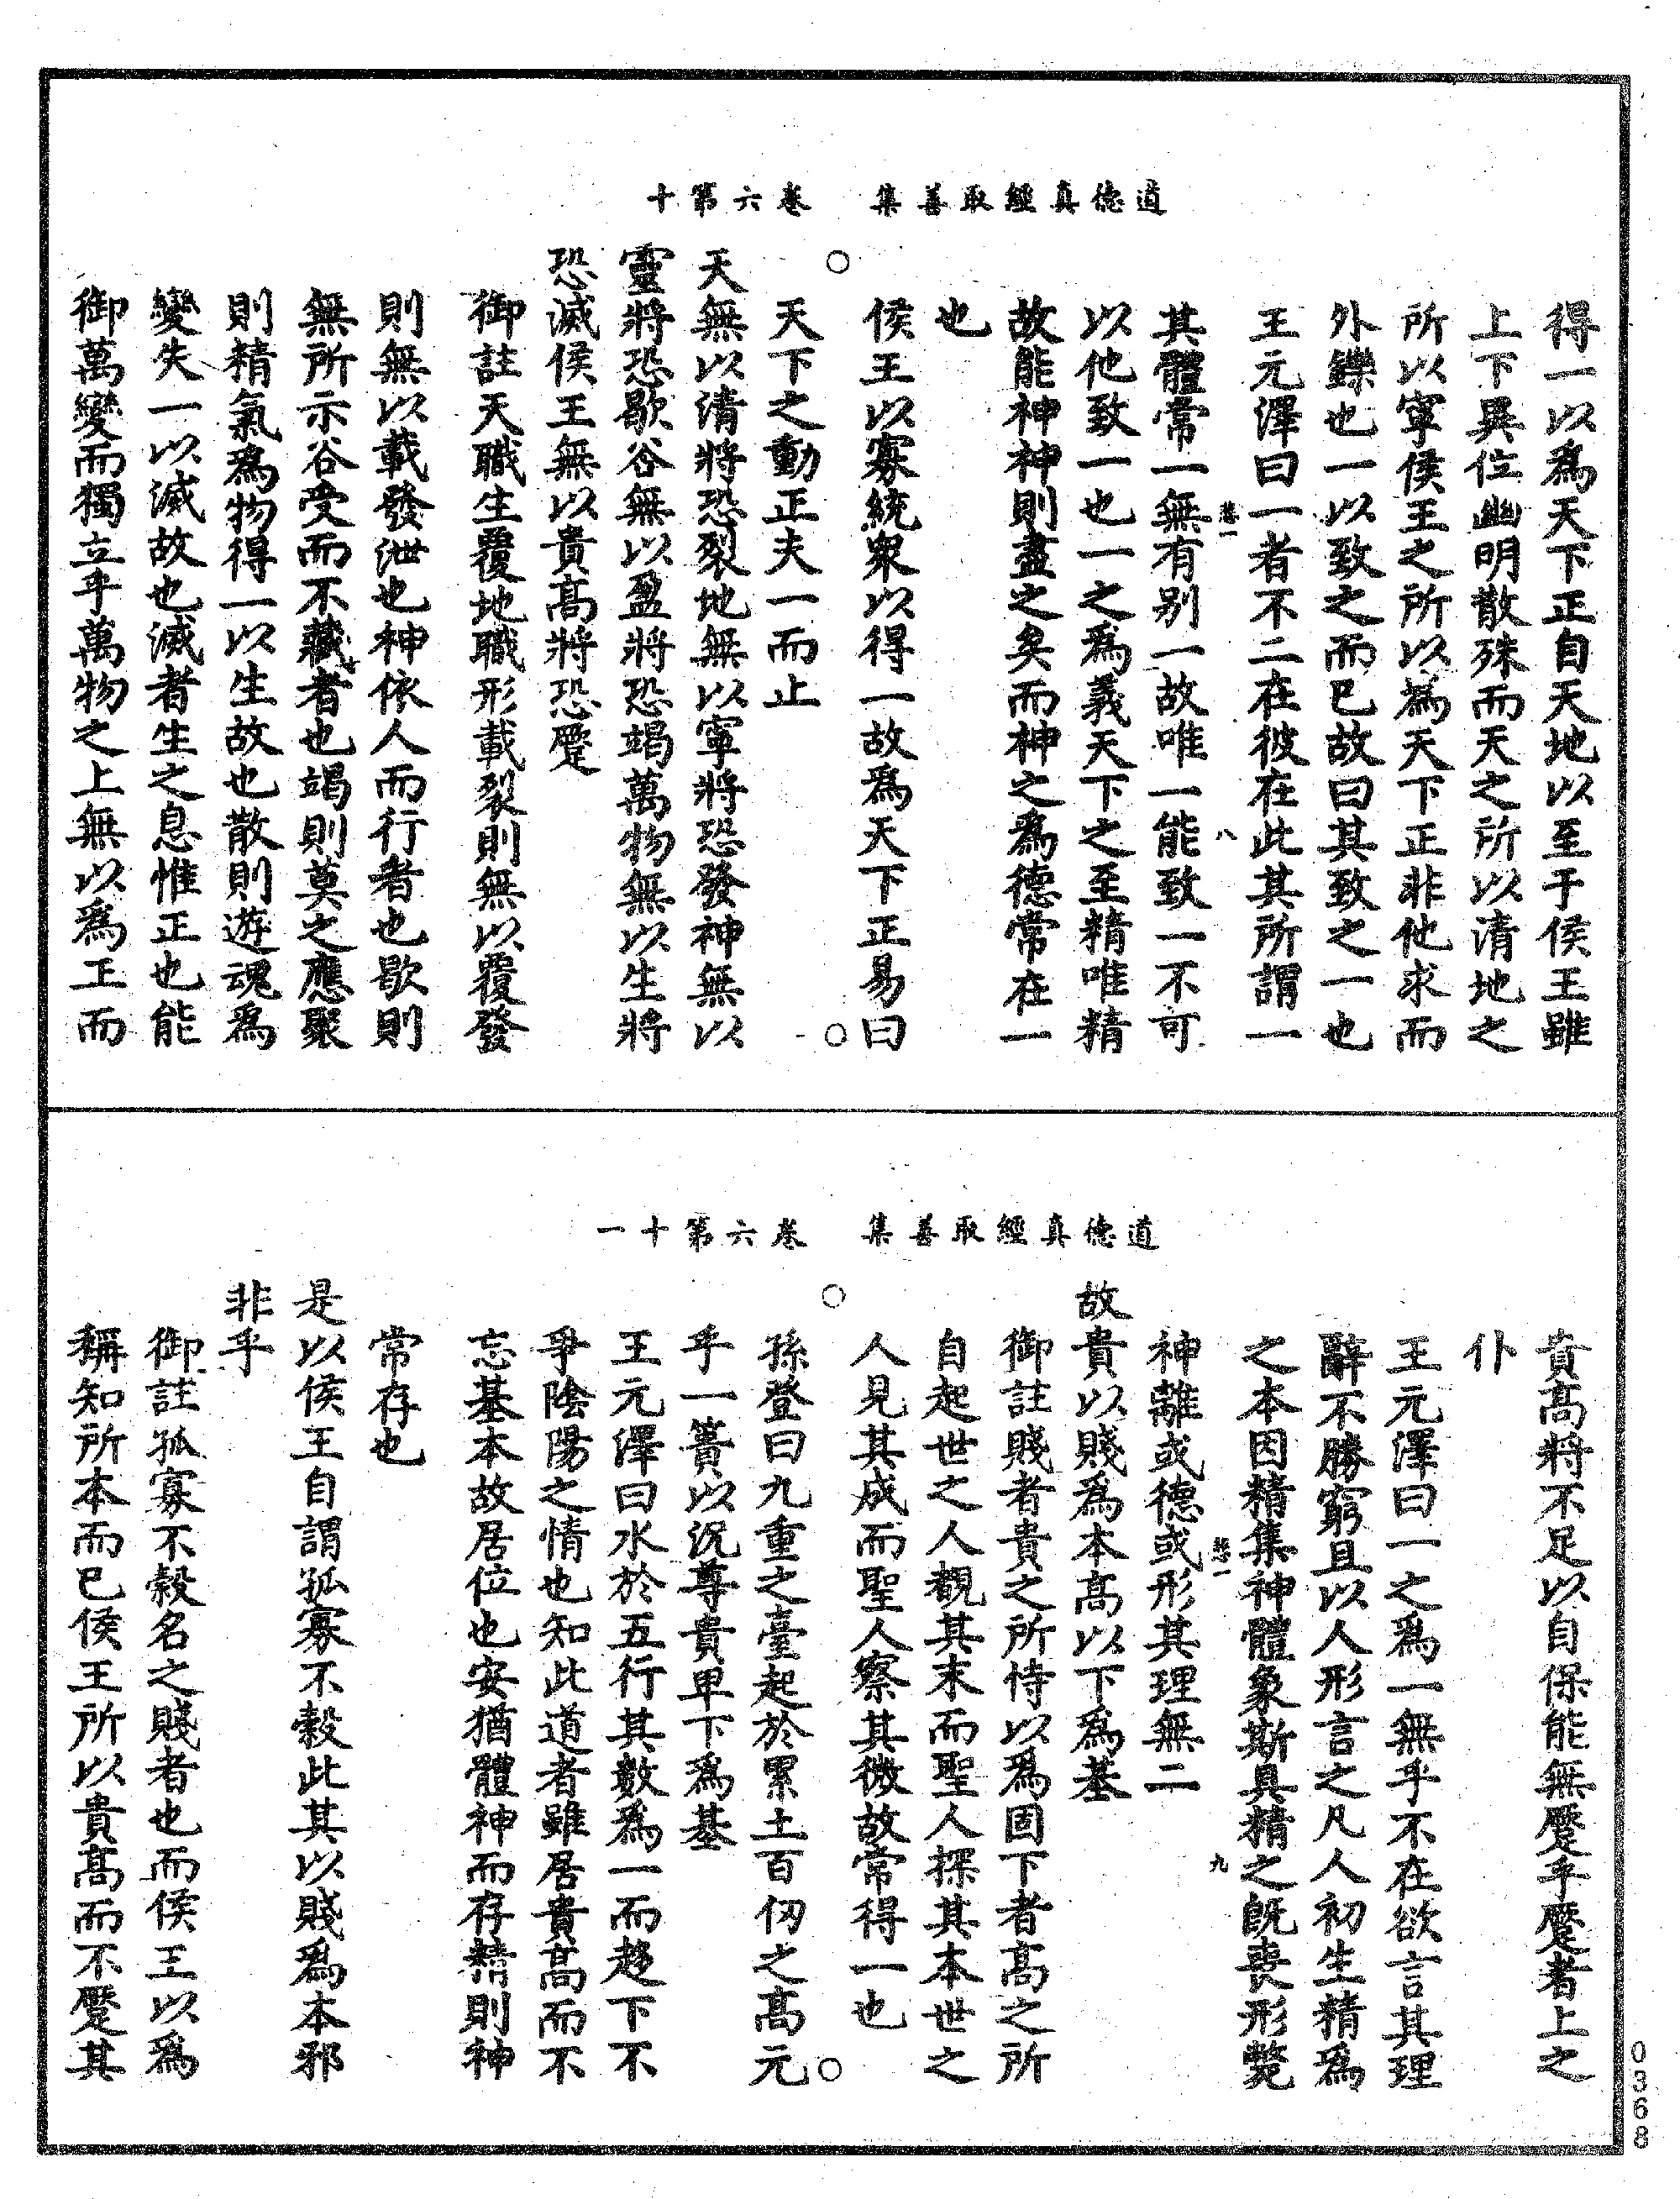 道德真經取善集　卷六第十
得一以為天下正自天地以至于侯王雖
上下異位幽明散殊而天之所以清地之
所以寧侯王之所以為天下正非他求而
外鑠也一以致之而已故曰其致之一也
王元澤曰一者不二在彼在此其所謂一
其體常一無有别一故唯一能致一不可
以他致一也一之為義天下之至精唯精
故能神神則盡之矣而神之為德常在一
也
侯王以寡統衆以得一故為天下正易曰
天下之動正夫一而止
天無以清將恐裂地無以寧將恐發神無以
靈將恐歇谷無以盈將恐竭萬物無以生將
恐滅侯王無以貴高將恐蹷
御註天職生覆地職形載裂則無以覆發
則無以載發泄也神依人而行者也歇則
無所示谷受而不藏者也竭則莫之應聚
則精氣為物得一以生故也散則遊魂為
變失一以滅故也滅者生之息惟正也能
御萬變而獨立乎萬物之上無以為正而
道德真經取善集　卷六第十一
貴高將不足以自保能無蹷乎蹷者上之
仆
王元澤曰一之為一無乎不在欲言其理
辭不勝窮且以人形言之凡人初生精為
之本因精集神體象斯具精之旣喪形斃
神離或德或形其理無二
故貴以賤為本高以下為基
御註賤者貴之所恃以為固下者高之所
自起世之人觀其末而聖人探其本世之
人見其成而聖人察其微故常得一也
孫登曰九重之臺起於累土百仞之高元
乎一簣以沉尊貴卑下為基
王元澤曰水於五行其數為一而趨下不
爭陰陽之情也知此道者雖居貴高而不
忘基本故居位也安猶體神而存精則神
常存也
是以侯王自謂孤寡不轂此其以賤為本邪
非乎
御註孤寡不穀名之賤者也而侯王以為
稱知所本而已侯王所以貴高而不蹷其
恭一
八
恭一
九
0368